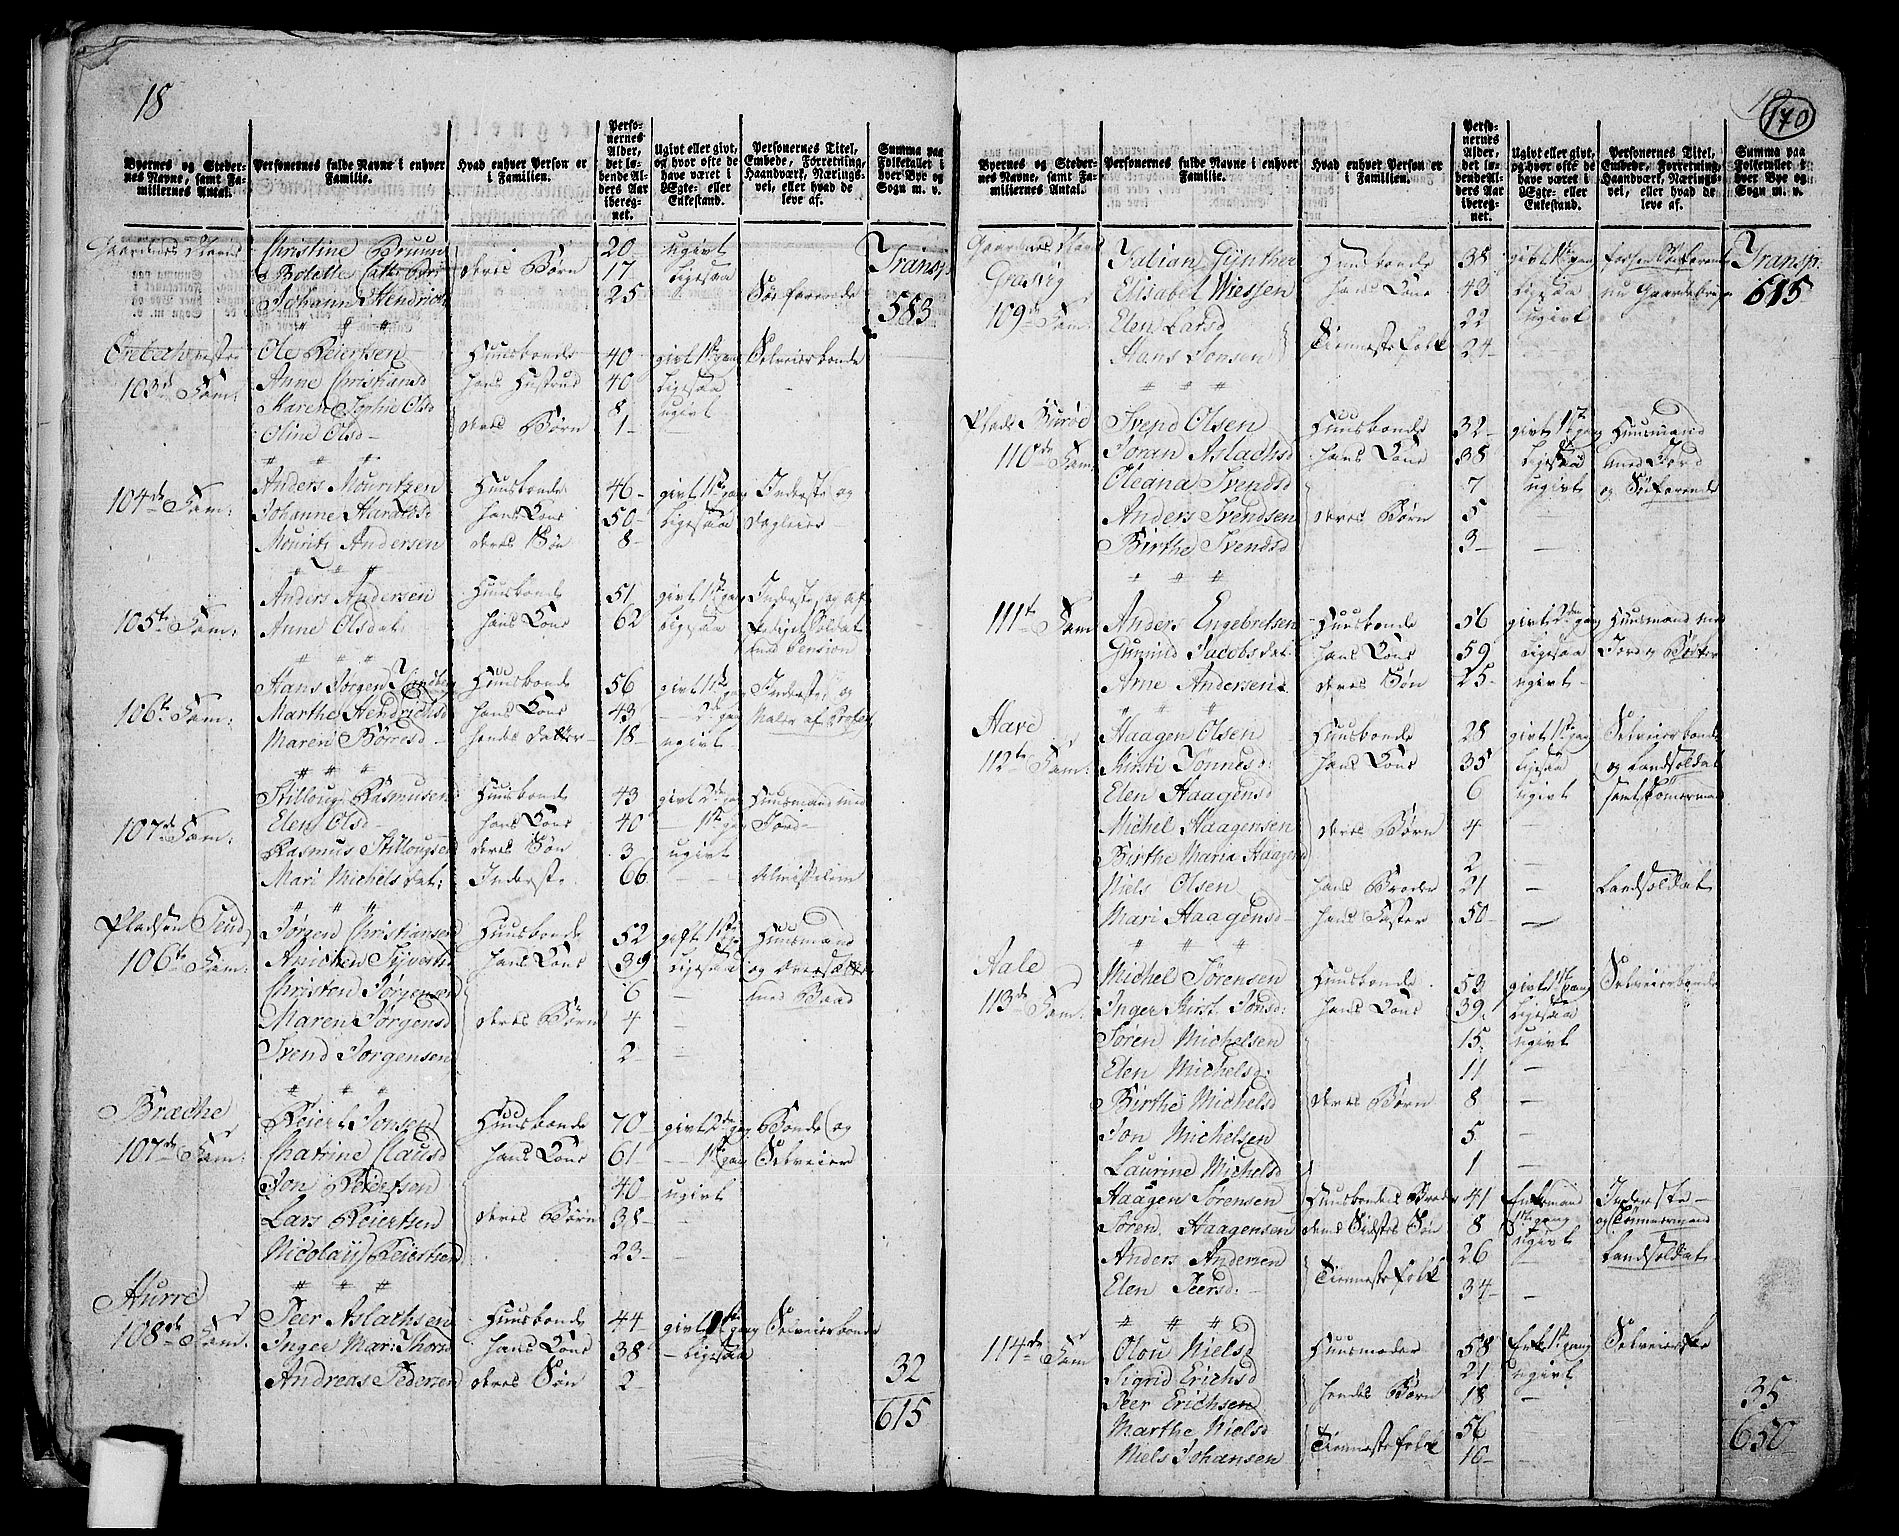 18
Byernes og Steder-
nes Navne, samt Fa-
miliernes Antal.
Personernes fulde Navne i enhver
Familie.
Hvad enhver Person er
i Familien.
Perso-
nernes
Alder,
det lø-
bende Al-
ders Aar
iberegnet.
Ugivt eller givt,
og hvor ofte de
have været i
Ægte- eller
Enkestand.
Personernes Titel,
Embede, Forretning,
Haandværk, Nærings-
vei, eller hvad de
leve af.
Summa paa
Folketallet i
hver Bye og
Sogn m. v.
Christine Bruun 20 ugivt Transp:
Bolette Cath: deres Børn 17 Ligesaa
Johann Hendrich 25 Søefarende 583
Ole Reiertsen Huusbonde 40 givt 1ste gang Selveierbonde
103de Fam: Anne Christiansd hans Hustrue 40 Ligesaa
Maren Sophie Olsd 8 ugivt
Oline Olsd deres Børn 1 —
104de Fam: Anders Mouritzen Huusbonde 46 givt 1ste gang Inderste og
Johanne Haralds: hans Kone 50 Ligesaa dagleier
Mouritz Andersen deres Søn 8 —
105te Fam: Anders Andersen Huusbonde 51 givt 1ste gang Inderste og af
Anne Olsdat: hans Kone 62 Ligesaa Soldat
med Pension
106te Fam: Hans Jørgen Huusbonde 56 givt 1ste gang Inderste og
Marthe Hendrichsd hans Kone 43 — 2de gang Maler af
Maren Børresd hendes datter 18 ugivt
107de Fam: Stilloug Rasmusen Huusbonde 43 givt 2de gang Huusmand med
Elen Olsd hans Kone 40 — 1ste gang Jord
Rasmus Stillougsen deres Søn 3 ugivt
Mari Michelsdat: Inderste 66 —
Pladsen
106te Fam: Jørgen Christiansen Huusbonde 52 gift 1ste Huusmand
Anichen Syverts hans Kone 39 Ligesaa og
Christen Jørgensen 6 — med
Maren Jørgensd deres Børn 4 —
Svend Jørgensen 2 —
Bræche
107de Fam: Reiert Jonsen Huusbonde 70 givt 2de gang Bonde og
Chatrine Clausd hans Kone 61 — 1ste gang Selveier
Jon Reiertsen 40 ugivt
Lars Reiertsen deres Børn 38 —
Nicolay Reiertsen 23 —
Hurre
108de Fam: Peer Aslachsen Huusbonde 44 givt 1ste gang Selveierbonde
Inger Mar: Thorsd hans Kone 38 Ligesaa
Andreas Pedersen deres Søn 2 —
32
615
170
Byernes og Steder-
nes Navne, samt Fa-
miliernes Antal.
Personernes fulde Navne i enhver
Familie.
Hvad enhver Person er
i Familien.
Perso-
nernes
Alder,
det lø-
bende Al-
ders Aar
iberegnet.
Ugivt eller givt,
og hvor ofte de
have været i
Ægte- eller
Enkestand.
Personernes Titel,
Embede, Forretning,
Haandværk, Nærings-
vei, eller hvad de
leve af.
Summa paa
Folketallet i
hver Bye og
Sogn m. v.
Julian Günther Huusbonde 38 givt 1ste gang Transp:
Elisabet Wiessen hans Kone 43 Ligesaa nu 615
109de Fam: Elen Larsd 22 ugivt
Hans Jonsen Tienestefolk 24 —
Svend Olsen Huusbonde 32 givt 1ste gang Huusmand
110de Fam: Joran Aslachsd hans Kone 38 Ligesaa med Jord
Oleana Svendsd 7 ugivt og Søefarende
Anders Svendsen deres Børn 5 —
Birthe Svendsd 3 —
111te Fam Anders Engebretsen Huusbonde 56 givt 2de gang Huusmand med
Gunnild Jacobsdat: hans Kone 59 Ligesaa Jord og
Arne Andersen deres Søn 25 ugivt
Have
Haagen Olsen Huusbonde 28 givt 1ste gang Selveierbonde
112te Fam: Kirsti Tønnesd: hans Kone 35 Ligesaa og Landsoldat
Elen Haagensd 6 ugivt samt Tømermand
Michel Haagensen deres Børn 4 —
Birthe Maria Haagensd 2 —
Niels Olsen hans Broder 21 — Landsoldat
Mari Haagensd hans Faster 50 —
Aale
Michel Sørensen Huusbonde 53 givt 1ste gang Selveierbonde
113de Fam: Inger Kirst: Jonsd: hans Kone 39 Ligesaa
Søren Michelsen 15 ugivt
Elen Michelsd: 11 —
Birthe Michelsd deres Børn 8 —
Jon Michelsen 5 —
Laurine Michelsd 1 —
Haagen Sørensen Huusbondens Broder 41 Enkemand Inderste
1ste gang og Tømmermand
Søren Haagensen Sidstes Søn 8 ugivt
Anders Andersen Tienestefolk 26 — Landsoldat
Elen Peersd: 34 —
114de Fam Olou Nielsd Huusmoder 58 Enke 1ste gang
Sigrid Erichsd 21 ugivt
Peer Erichsen hendes Børn 18 —
Marthe Nielsd 56
Niels Johansen Tienestefolk 16 —
35
650